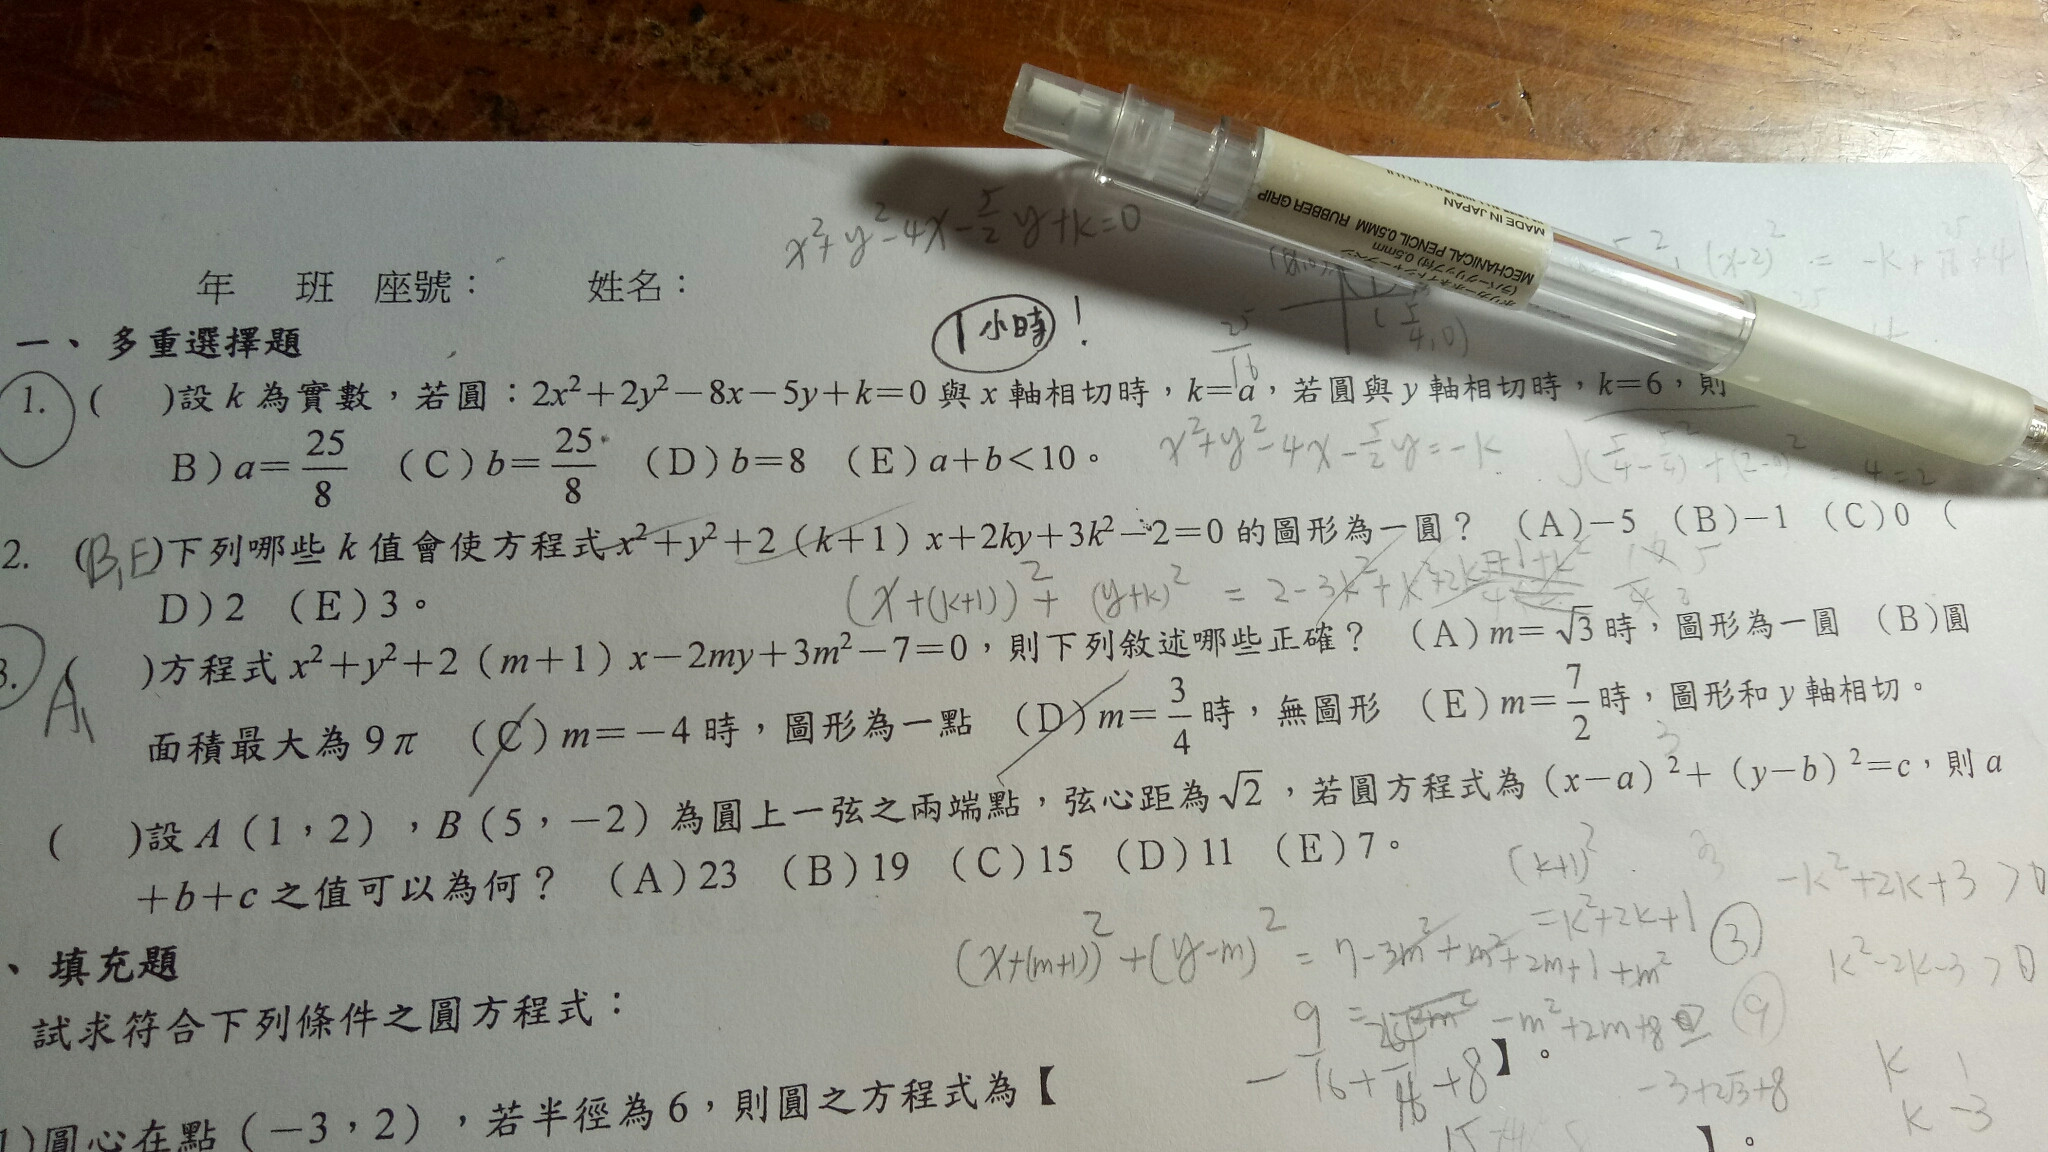 x²+y²-4x-5/2y+k=0
年 班 座號： 姓名：
1小時！
一、多重選擇題
1. ( )設k為實數，若圓：2x²+2y²-8x-5y+k=0與x軸相切時，k=a，若圓與y軸相切時，k=6，則
B)a=25/8 (C)b=25/8 (D)b=8 (E)a+b<10。
x²+y²-4x-5/2y=-k
2. (B,E)下列哪些k值會使方程式x²+y²+2(k+1)x+2ky+3k²-2=0的圖形為一圓？ (A)-5 (B)-1 (C)0 (
D)2 (E)3。
(x+(k+1))²+(y+k)²=2-3k²+k²+2k+1+k²
3. A, ( )方程式x²+y²+2(m+1)x-2my+3m²-7=0，則下列敘述哪些正確？ (A)m=√3時，圖形為一圓 (B)圓
面積最大為9π (C)m=-4時，圖形為一點 (D)m=3/4時，無圖形 (E)m=7/2時，圖形和y軸相切。
( )設A(1，2)，B(5，-2)為圓上一弦之兩端點，弦心距為√2，若圓方程式為(x-a)²+(y-b)²=c，則a
+b+c之值可以為何？ (A)23 (B)19 (C)15 (D)11 (E)7。
(k+1)²
=k²+2k+1
-k²+2k+3>0
k²-2k-3>0
(x+(m+1))²+(y-m)²=7-3m²+m²+2m+1+m²
③
、填充題
試求符合下列條件之圓方程式：
-m²+2m+8
⑨
】。
-3+2√3+8
k 1
k -3
1)圓心在點(-3，2)，若半徑為6，則圓之方程式為【
】。
MADE IN JAPAN
MECHANICAL PENCIL 0.5MM RUBBER GRIP